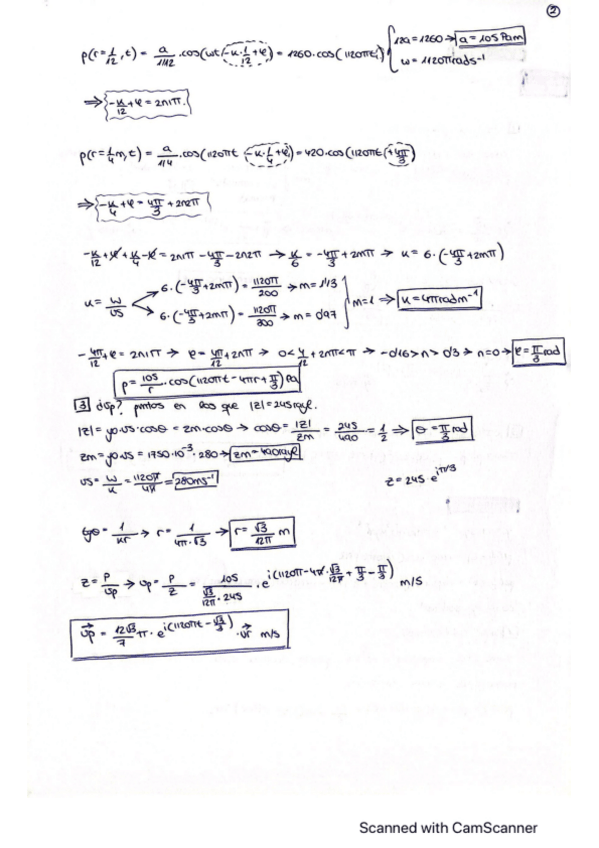 2
p(r=1/12, t) = a/(1/12) · cos(ωt - κ·1/12 + φ) = 1260·cos(1120πt) { 12a = 1260 → a = 105 Pa m
ω = 1120π rad s⁻¹
⇒ -κ/12 + φ = 2n1π.
p(r=1/4 m, t) = a/(1/4) · cos(1120πt - κ·1/4 + φ) = 420·cos(1120πt + 4π/3)
⇒ -κ/4 + φ = 4π/3 + 2n2π
-κ/12 + φ + κ/4 - φ = 2n1π - 4π/3 - 2n2π → κ/6 = -4π/3 + 2mπ → κ = 6·(-4π/3 + 2mπ)
κ = ω/vs
6·(-4π/3 + 2mπ) = 1120π/200 → m = 1'13
6·(-4π/3 + 2mπ) = 1120π/300 → m = 0'97
} m = 1 → κ = 4π rad m⁻¹
-4π/12 + φ = 2n1π → φ = 4π/12 + 2nπ → 0 < 4/12 + 2nπ < π → -0'16 > n > 0'3 → n = 0 → φ = π/3 rad
p = 105/r · cos(1120πt - 4πr + π/3) Pa
3 d vp? puntos en los que |z| = 245 rayl.
|z| = ρ0·vs·cosθ = zm·cosθ → cosθ = |z|/zm = 245/490 = 1/2 ⇒ θ = π/3 rad
zm = ρ0·vs = 1750·10⁻³·280 → zm = 490 rayl
z = 245 e^(iπ/3)
vs = ω/κ = 1120π/4π = 280 m s⁻¹
tgθ = 1/κr → r = 1/(4π·√3) → r = √3/12π m
z = p/vp → vp = p/z = 105/(√3/12π · 245) · e^(i(1120π - 4π·√3/12π + π/3 - π/3)) m/s
vp = 12√3/7 π · e^(i(1120πt - √3/3)) · ur m/s
Scanned with CamScanner